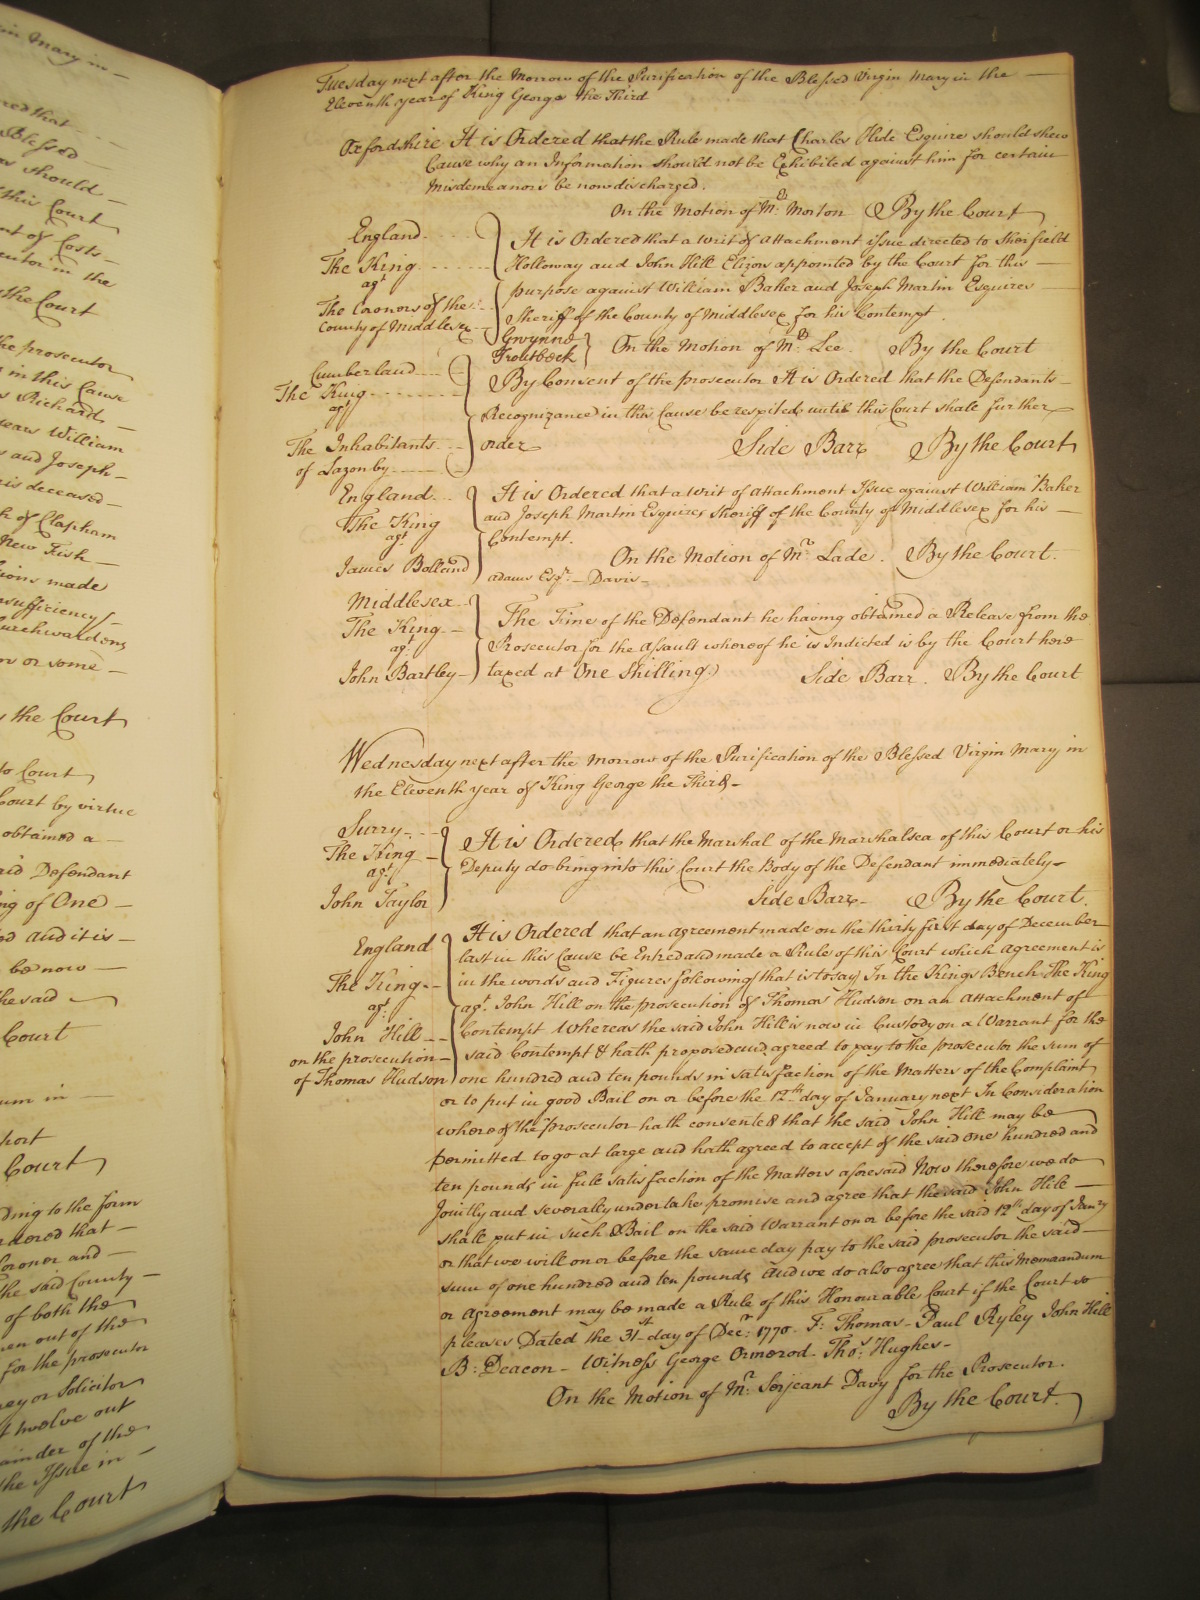 in Mary in
red that
Blessed
should
this Court
nt of Costs
cutor in the
the Court
the prosecutor
in this Cause
Richard
years William
and Joseph
is deceased
of Clapham
New Fish
ions made
nsufficiency
urchwardens
or some
y the Court
to Court
Court by virtue
obtained a
aid Defendant
ng of One
and it is
be now
the said
Court
um in
hort
Court
ding to the form
rdered that
Coroner and
the said County
of both the
en out of the
for the prosecutor
ney or Solicitor
t twelve out
ainder of the
the Issue in
the Court
Tuesday next after the Morrow of the Purification of the Blessed Virgin Mary in the
Eleventh year of King George the Third
Oxfordshire It is Ordered that the Rule made that Charles Hide Esquire should shew
Cause why an Information should not be Exhibited against him for certain
Misdemeanors be now discharged.
On the Motion of Mr. Morton By the Court
England
The King
agt
The Coroners of the
County of Middlesex
It is Ordered that a writ of attachment issue directed to Sherfield
Holloway and John Hill Elizors appointed by the Court for this
purpose against William Baker and Joseph Martin Esquires
Sheriff of the County of Middlesex for his Contempt.
Gwynne
Troutbeck
On the Motion of Mr. Lee. By the Court
Cumberland
The King
agt
The Inhabitants
of Lazonby
By Consent of the prosecutor It is Ordered that the Defendants
Recognizance in this Cause be respited until this Court shall further
order
Side Barr By the Court
England
The King
agt
James Bolland
It is Ordered that a writ of attachment Issue against William Baker
and Joseph Martin Esquires Sheriff of the County of Middlesex for his
Contempt.
On the Motion of Mr. Lade. By the Court.
adams Esqr. Davis
Middlesex
The King
agt
John Bartley
The Fine of the Defendant he having obtained a Release from the
Prosecutor for the assault whereof he is Indicted is by the Court here
taxed at One Shilling
Side Barr. By the Court
Wednesday next after the Morrow of the Purification of the Blessed Virgin Mary in
the Eleventh year of King George the Third
Surry
The King
agt
John Taylor
It is Ordered that the Marshal of the Marshalsea of this Court or his
Deputy do bring into this Court the Body of the Defendant immediately
Side Barr By the Court.
England
The King
agt
John Hill
on the prosecution
of Thomas Hudson
It is Ordered that an agreement made on the thirty first day of December
last in this Cause be Entred and made a Rule of this Court which agreement is
in the words and Figures following that is to say In the Kings Bench The King
agt. John Hill on the prosecution of Thomas Hudson on an attachment of
Contempt Whereas the said John Hill is now in Custody on a Warrant for the
said Contempt & hath proposed and agreed to pay to the prosecutor the sum of
one hundred and ten pounds in satisfaction of the Matters of the Complaint
or to put in good Bail on or before the 12th day of January next In Consideration
whereof the prosecutor hath consented that the said John Hill may be
permitted to go at large and hath agreed to accept of the said one hundred and
ten pounds in full satisfaction of the Matters aforesaid Now therefore we do
Jointly and severally undertake promise and agree that the said John Hill
shall put in such Bail on the said Warrant on or before the said 12th day of Janry
or that we will on or before the same day pay to the said prosecutor the said
sum of one hundred and ten pounds and we do also agree that this Memorandum
or agreement may be made a Rule of this Honourable Court if the Court so
pleases Dated the 31st day of Decr: 1770. F: Thomas - Paul Ryley John Hill
B: Deacon - Witness George Ormerod - Thos: Hughes -
On the Motion of Mr. Serjeant Davy for the Prosecutor.
By the Court.